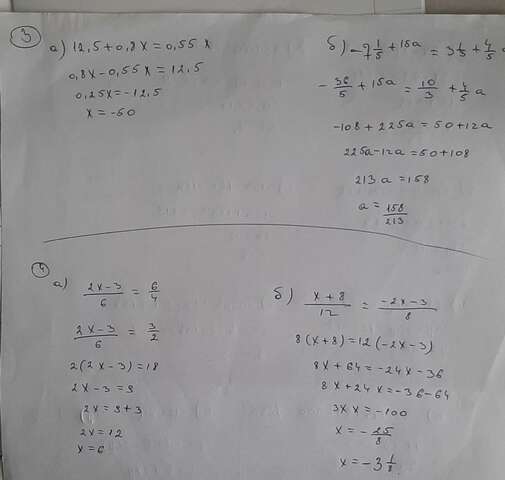 3
а) 12,5 + 0,8x = 0,55 x
0,8x - 0,55x = 12,5
0,25x = -12,5
x = -50
б) -7 1/5 + 15a = 3 1/3 + 4/5 a
- 36/5 + 15a = 10/3 + 4/5 a
-108 + 225a = 50 + 12a
225a - 12a = 50 + 108
213 a = 158
a = 158/213
4
а) (2x-3)/6 = 6/4
(2x-3)/6 = 3/2
2(2x-3) = 18
2x-3 = 9
2x = 9+3
2x = 12
x = 6
б) (x+8)/12 = (-2x-3)/8
8(x+8) = 12(-2x-3)
8x + 64 = -24x - 36
8x + 24x = -36 - 64
x = - 25/8
x = -3 1/8